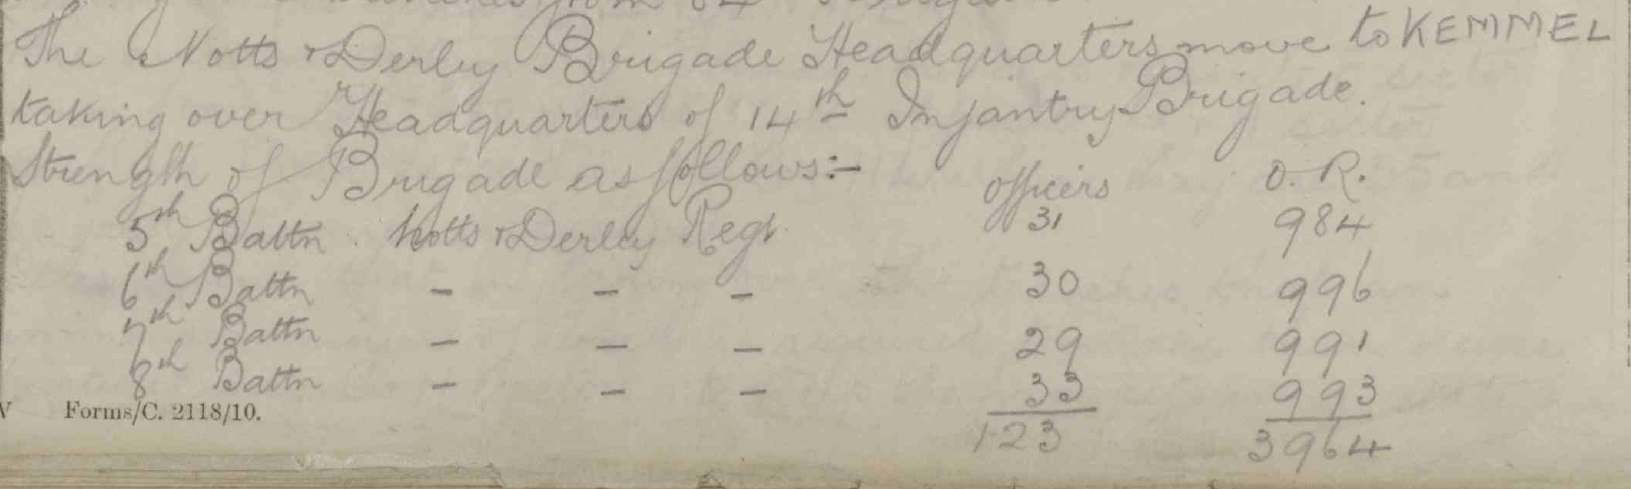 The Notts & Derby Brigade Headquarters move to KEMMEL
taking over Headquarters of 14th Infantry Brigade.
Strength of Brigade as follows:- Officers O.R.
5th Battn Notts & Derby Regt. 31 984
6th Battn - - - 30 996
7th Battn - - - 29 991
8th Battn - - - 33 993
Forms/C. 2118/10.
123 3964